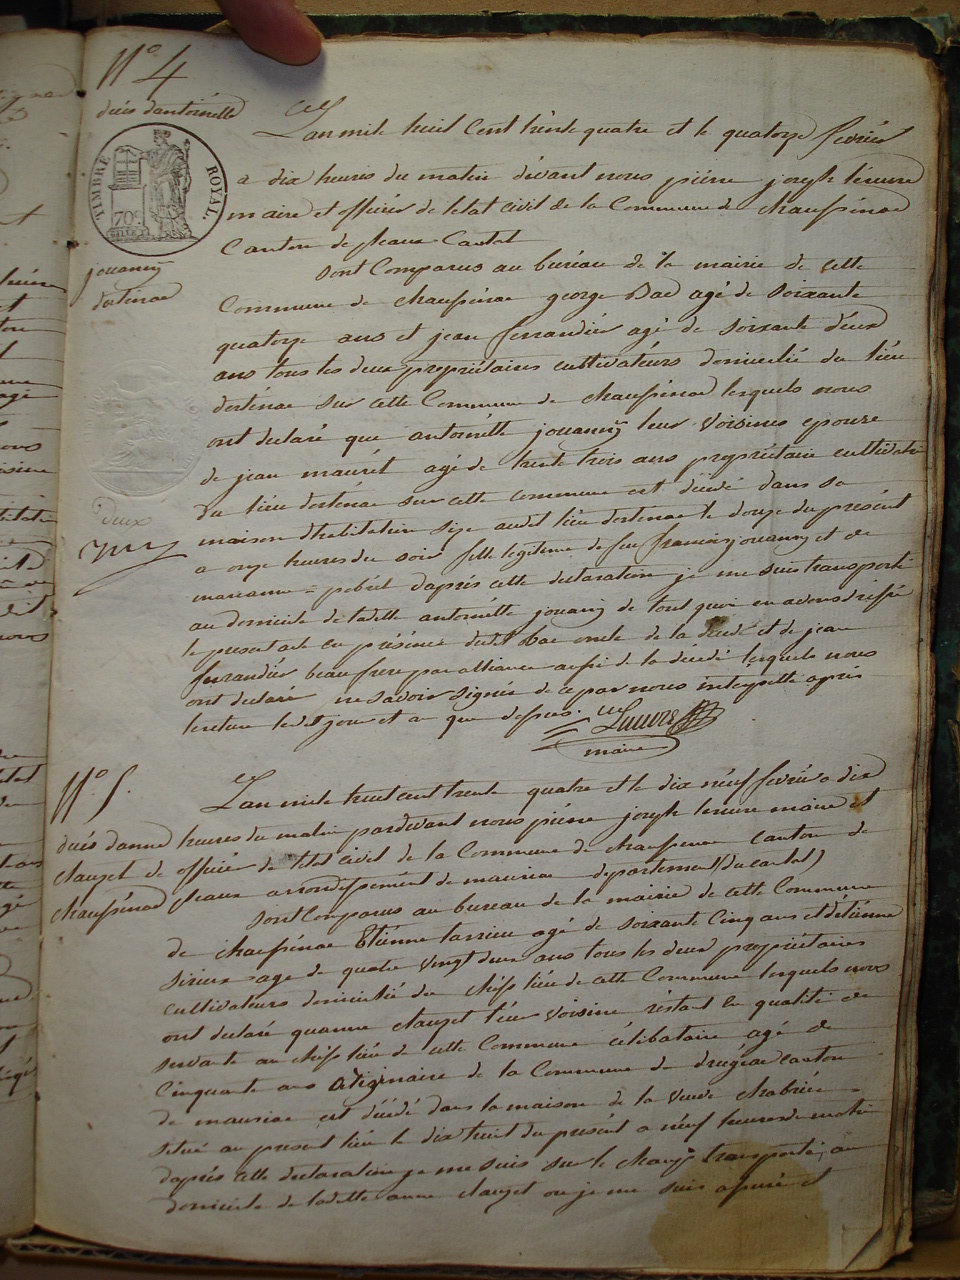 N° 4
décès dantoinette
TIMBRE ROYAL
70c
jouanny
dostenac
deux
Lan mile huit Cent trente quatre et le quatorze fevrier
a dix heures du matin devant nous pierre joseph
maire et officier de letat civil de la Commune de chaussenac
Canton de pleaux Cantal
sont Comparus au bureau de la mairie de cette
Commune de chaussenac george Bac agé de soixante
quatorze ans et jean ferrandier agé de soixante deux
ans tous les deux propriétaires cultivateurs domicilié du lieu
dostenac sur cette Commune de chaussenac lesquels nous
ont declaré que antoinette jouanny leur voisines epouse
de jean mauret agé de trente trois ans propriétaire cultivatr
du lieu dostenac sur cette commune est décédé dans sa
maison dhabitation sise audit lieu dostenac le douze du présent
a onze heures du soir fille legitime de feu françois jouanny et de
marianne daprès cette declaration je me suis transporté
au domicile de ladite antoinette jouanny de tout quoi en avons dressé
le present acte en présence dudit Bac oncle de la décédé et de jean
ferrandier beau frere par alliance aussi de la décédé lesquels nous
ont declaré ne savoir signer de ce par nous interpellé après
lecture ledit jour et an que dessus.
maire
N° 5.
décès danne
clauzet de
chaussénac
Lan mile huit cent trente quatre et le dix neuf fevrier a dix
heures du matin pardevant nous pierre joseph maire et
officier de letat civil de la Commune de chaussenac canton de
pleaux arrondissement de mauriac departement (du cantal)
sont Comparus au bureau de la mairie de cette Commune
de chaussenac Etienne agé de soixante Cinq ans et detienne
age de quatre vingt deux ans tous les deux propriétaires
cultivateurs domicilié du cheff lieu de cette Commune lesquels nous
ont declaré quanne clauzet leur voisine restant en qualité de
servante au cheff lieu de cette Commune célibataire agé de
Cinquante ans originaire de la Commune de drugeac canton
de mauriac est décédé dans la maison de la veuve chabrier
situé au present lieu le dix huit du présent a neuf heures du matin
daprès cette declaration je me suis sur le champ transporté, au
domicile de ladette anne clauzet ou je me suis assuré et